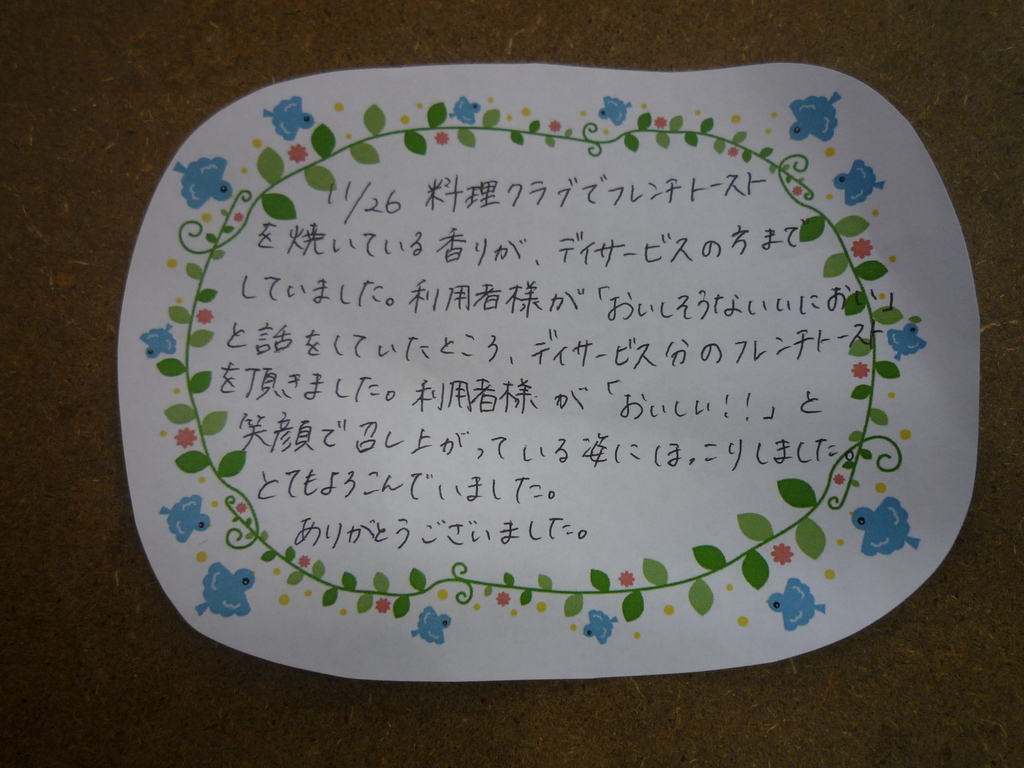 11/26 料理クラブでフレンチトースト
を焼いている香りが、デイサービスの方まで
していました。利用者様が「おいしそうないいにおい」
と話をしていたところ、デイサービス分のフレンチトースト
を頂きました。利用者様が「おいしい!!」と
笑顔で召し上がっている姿にほっこりしました。
とてもよろこんでいました。
ありがとうございました。